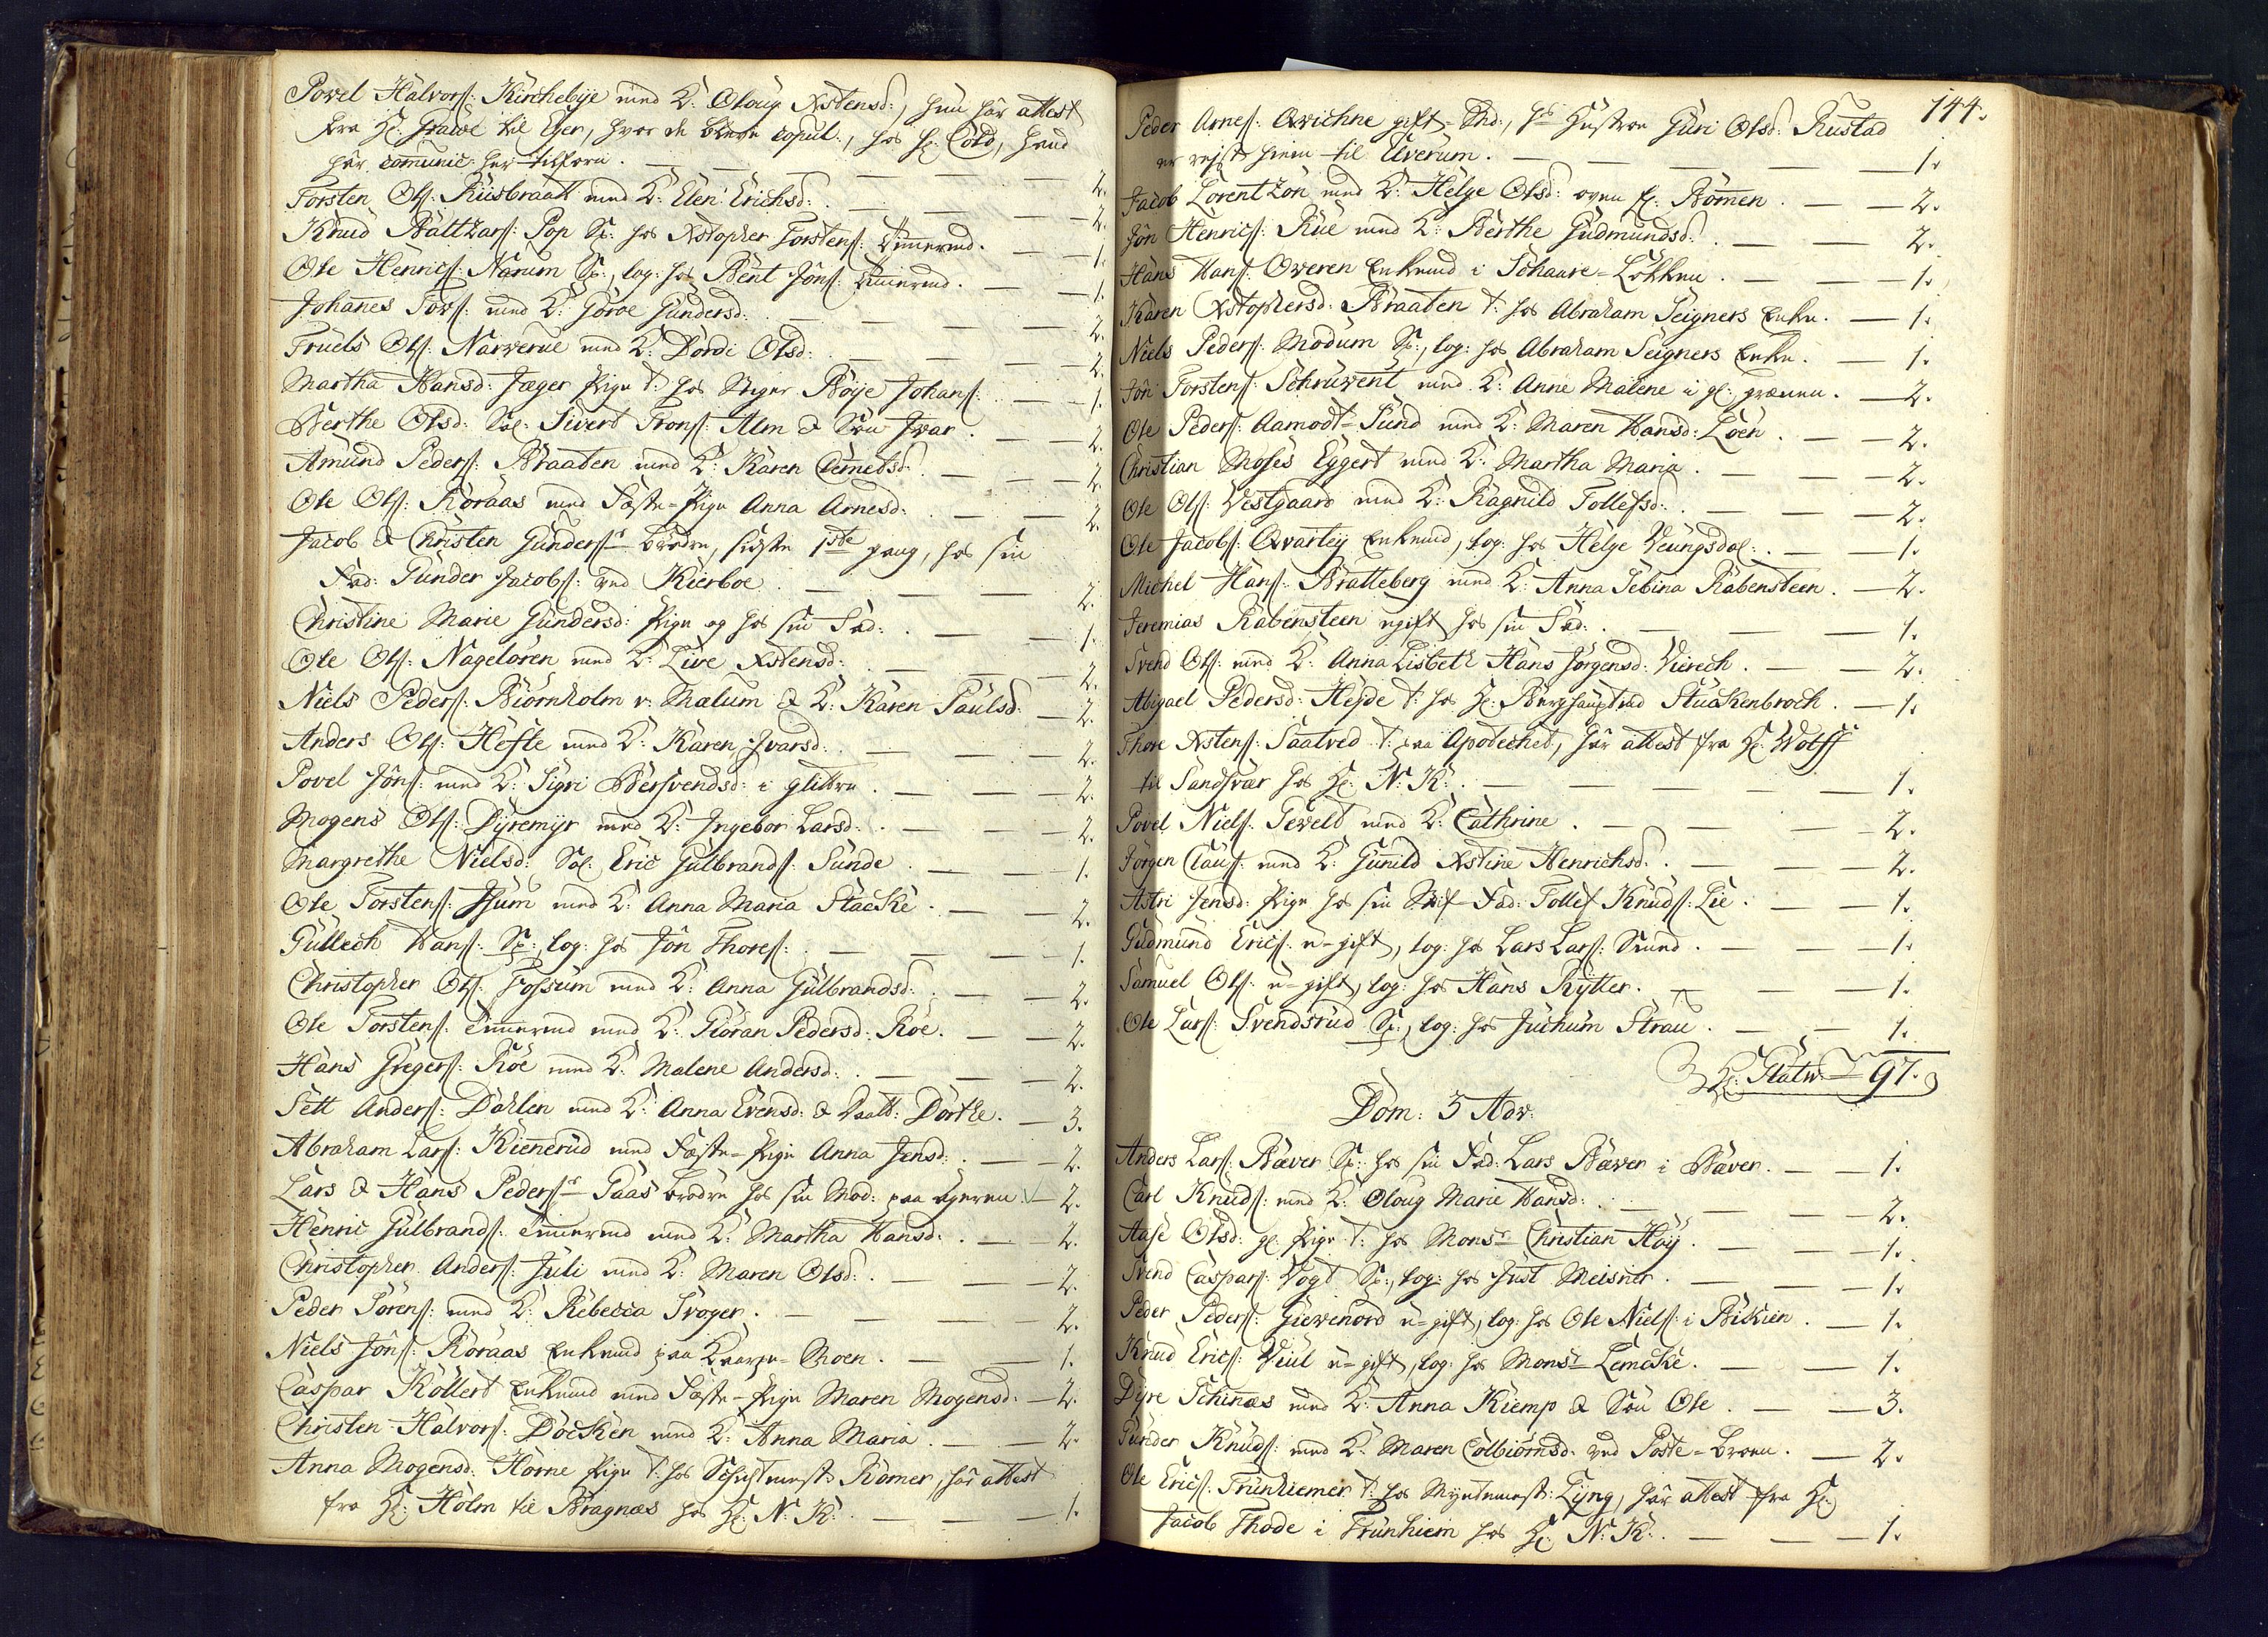 Povel Halvors: Kirchebÿe med K: Oloug Xstensd:, hun har attest
fra Hr: til Eger, hvor de bleve copul:, hos Hr: Cold, hand
har comunic: her tilforn. — 2.
Torsten Ols: Riisbraatt med K: Elen Erichsd: — 2.
Knud Baltzars: Pop Sp: hos Xstopher Torstens: Timermd. — 1.
Ole Henrics: Narum Sp:, log: hos Bent Jöns: Timermd. — 1.
Johanes Tovs: med K: Göroe Gundersd: — 2.
Truels Ols: Narverue med K: Dordi Olsd: — 2.
Martha Hansd: Jæger Pige t: hos Stiger Böÿe Johans: — 1.
Berthe Olsd: Sal: Sivert Trons: Alm & Sön Ivar. — 2.
Amund Peders: Braaten med K: Karen Clemetsd: — 2.
Ole Ols: Roraas med Fæste-Pige Anna Arnesd: — 2.
Jacob & Christen Gunders:r Brödre, sidste 1ste gang, hos sin
Fad: Gunder Jacobs: ved Kierboe — 2.
Christine Marie Gundersd: Pige og hos sin Fad: — 1.
Ole Ols: Nagelören med K: Live Xstensd: — 2.
Niels Peders: Biörnholm v: Mælum & K: Karen Paulsd: — 2.
Anders Ols: Hefte med K: Karen Ivarsd: — 2.
Povel Jöns: med K: Sigri Bersvendsd: i glittre. — 2.
Mogens Ols: Dÿremÿr med K: Ingebor Larsd: — 2.
Margrethe Nielsd: Sal: Eric Gulbrands: Sunde — 1.
Ole Torstens: Isum med K: Anna Maria Stacke. — 2.
Gullech Hans: Sp:, log: hos Jön Thores: — 1.
Christopher Ols: Fossum med K: Anna Gulbrandsd: — 2.
Ole Torstens: Timermd med K: Giöran Pedersd: Röe. — 2.
Hans Gregers: Röe med K: Malene Andersd: — 2.
Sett Anders: Dahlen med K: Anna Evensd: & Datt: Dorthe. — 3.
Abraham Lars: Kienerud med Fæste-Pige Anna Jensd: — 2.
Lars & Hans Peders:r Gaas brödre hos sin Mod: paa Ageren: — 2.
Henric Gulbrands: Timermd med K: Martha Hansd: — 2.
Christopher Anders: Juli med K: Maren Olsd: — 2.
Peder Sörens: med K: Rebecca Svoger. — 2.
Niels Jöns: Roraas Enkemd paa Moen. — 1.
Caspar Kollert Enkemd med Fæste-Pige Maren Mogensd: — 2.
Christen Halvors: Docken med K: Anna Maria. — 2.
Anna Mogensd: Horne Pige t: hos Schichtmest: Römer, har attest
fra Hr: Holm til Bragnæs hos Hr: N: K: — 1.
144.
Peder Arnes: Qvichne gift Md:, hs Hustroe Guri Olsd: Rustad
er rejst hiem til Elverum. — 1.
Jacob Lorentzön med K: Helge Olsd: oven f: Bommen. — 2.
Jön Henrics: Rue med K: Berthe Gudmundsd: — 2.
Hans Hans: Overen Enkemd i Schaare-Lökken. — 1.
Karen Xstophersd: Braaten t: hos Abraham Seigners Enke. — 1.
Niels Peders: Modum Sp:, log: hos Abraham Seigners Enke. — 1.
Jön Torstens: Schruvent med K: Anne Malene i gl: grænen. — 2.
Ole Peders: Aamodt-Sund med K: Maren Hansd: Löen. — 2.
Christian Moses Eggert med K: Martha Maria. — 2.
Ole Ols: Vestgaard med K: Ragnild Tollefsd: — 2.
Ole Jacobs: Qvarteÿ Enkemd, log: hos Helge Veungsdal: — 1.
Michel Hans: Bratteberg med K: Anna Sebina Rabensteen. — 2.
Jeremias Rabensteen ugift hos sin Fad: — 1.
Svend Ols: med K: Anna Lisbeth Hans Jörgensd: Vierech. — 2.
Abigael Pedersd: Hejde t: hos Hr: Berghauptmd Stuckenbroch. — 1.
Thore Xstens: Saatved t: paa Apotechet, har attest fra Hr: Wolff
til Sandsvær hos Hr: N: K: — 1.
Povel Niels: Teveld med K: Cathrine. — 2.
Jörgen Claus: med K: Gunild Xstine Henrichsd: — 2.
Astri Jensd: Pige hos sin Stif-Fad: Tollef Knuds: Lie. — 1.
Gudmund Erics: u-gift, log: hos Lars Lars: Smed. — 1.
Samuel Ols: u-gift, log: hos Hans Rÿtter. — 1.
Ole Lars: Svendsrud Sp:, log: hos Juchum Strau. — 1.
Hr: Glatw: — 97.
Dom: 3 Adv:
Anders Lars: Bæver Sp: hos sin Fad: Lars Bæver i Bæver. — 1.
Carl Knuds: med K: Oloug Marie Hansd: — 2.
Aase Olsd: gl: Pige t: hos Monsr Christian Höÿ. — 1.
Svend Caspars: Vogt Sp:, log: hos Just Meisner. — 1.
Peder Peders: Gievenord u-gift, log: hos Ole Niels: i Bikien. — 1.
Knud Erics: Viul u-gift, log: hos Monsr Lemcke. — 1.
Dÿre Schinæs med K: Anna Kiemp & Sön Ole. — 3.
Gunder Knuds: med K: Maren Colbiörnsd: ved Poste-broen. — 2.
Ole Erics: Trunhiemer t: hos Mÿntmest: Lÿng, har attest fra Hr:
Jacob Thode i Trunhiem hos Hr: N: K: — 1.